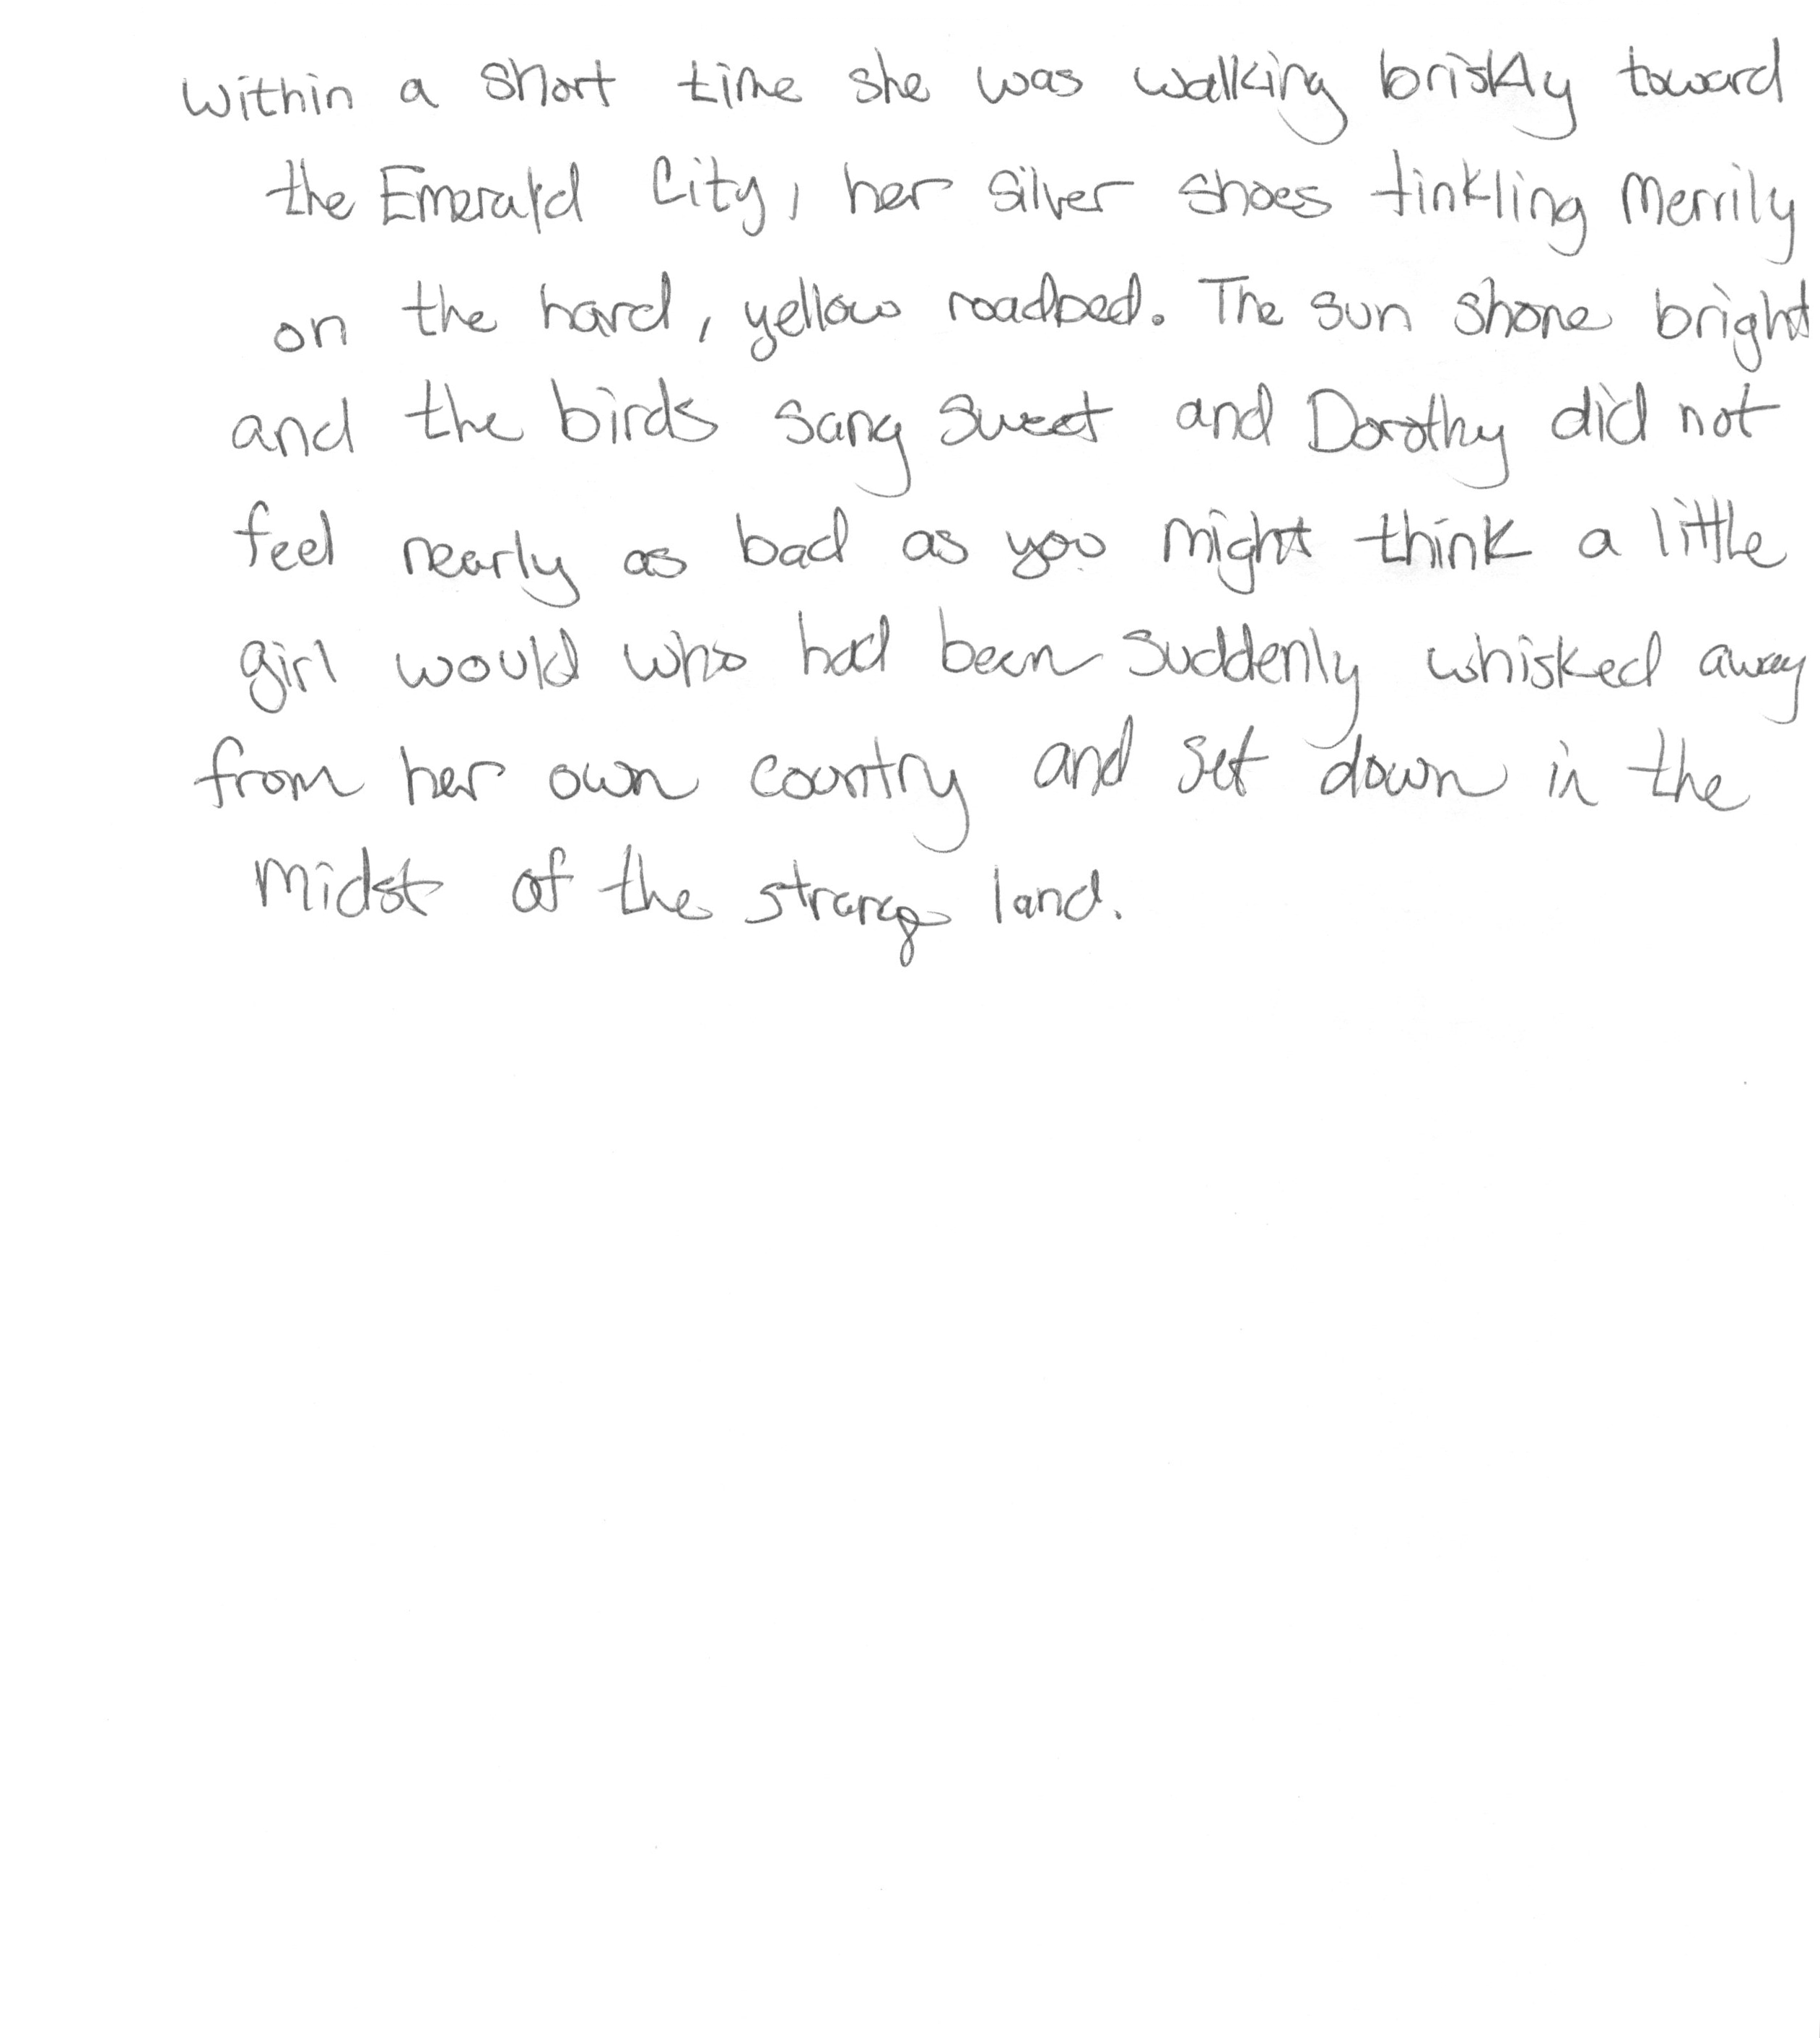 Within a short time she was walking briskly toward
the Emerald City, her silver shoes tinkling merrily
on the hard, yellow roadbed. The sun shone bright
and the birds sang sweet and Dorothy did not
feel nearly as bad as you might think a little
girl would who had been suddenly whisked away
from her own country and set down in the
midst of the strange land.